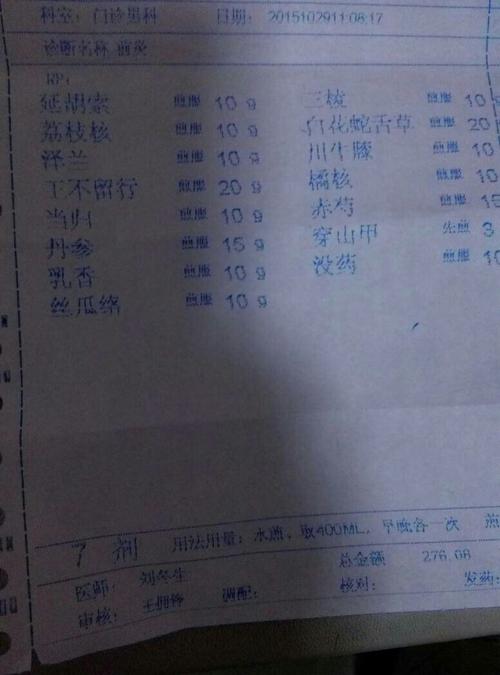 科室: 门诊男科 日期: 2015102911:08:17
诊断名称
RP:
延胡索 煎服 10 g 三棱 煎服 10
荔枝核 煎服 10 g 白花蛇舌草 煎服 20
泽兰 煎服 10 g 川牛膝 煎服 10
王不留行 煎服 20 g 橘核 煎服 10
当归 煎服 10 g 赤芍 煎服 15
丹参 煎服 15 g 穿山甲 先煎 3
乳香 煎服 10 g 没药 煎服 10
丝瓜络 煎服 10 g
7 剂 用法用量: 水煎, 取400ML, 早晚各一次
总金额 276.08
医师: 刘冬生 核对: 发药:
审核: 调配: